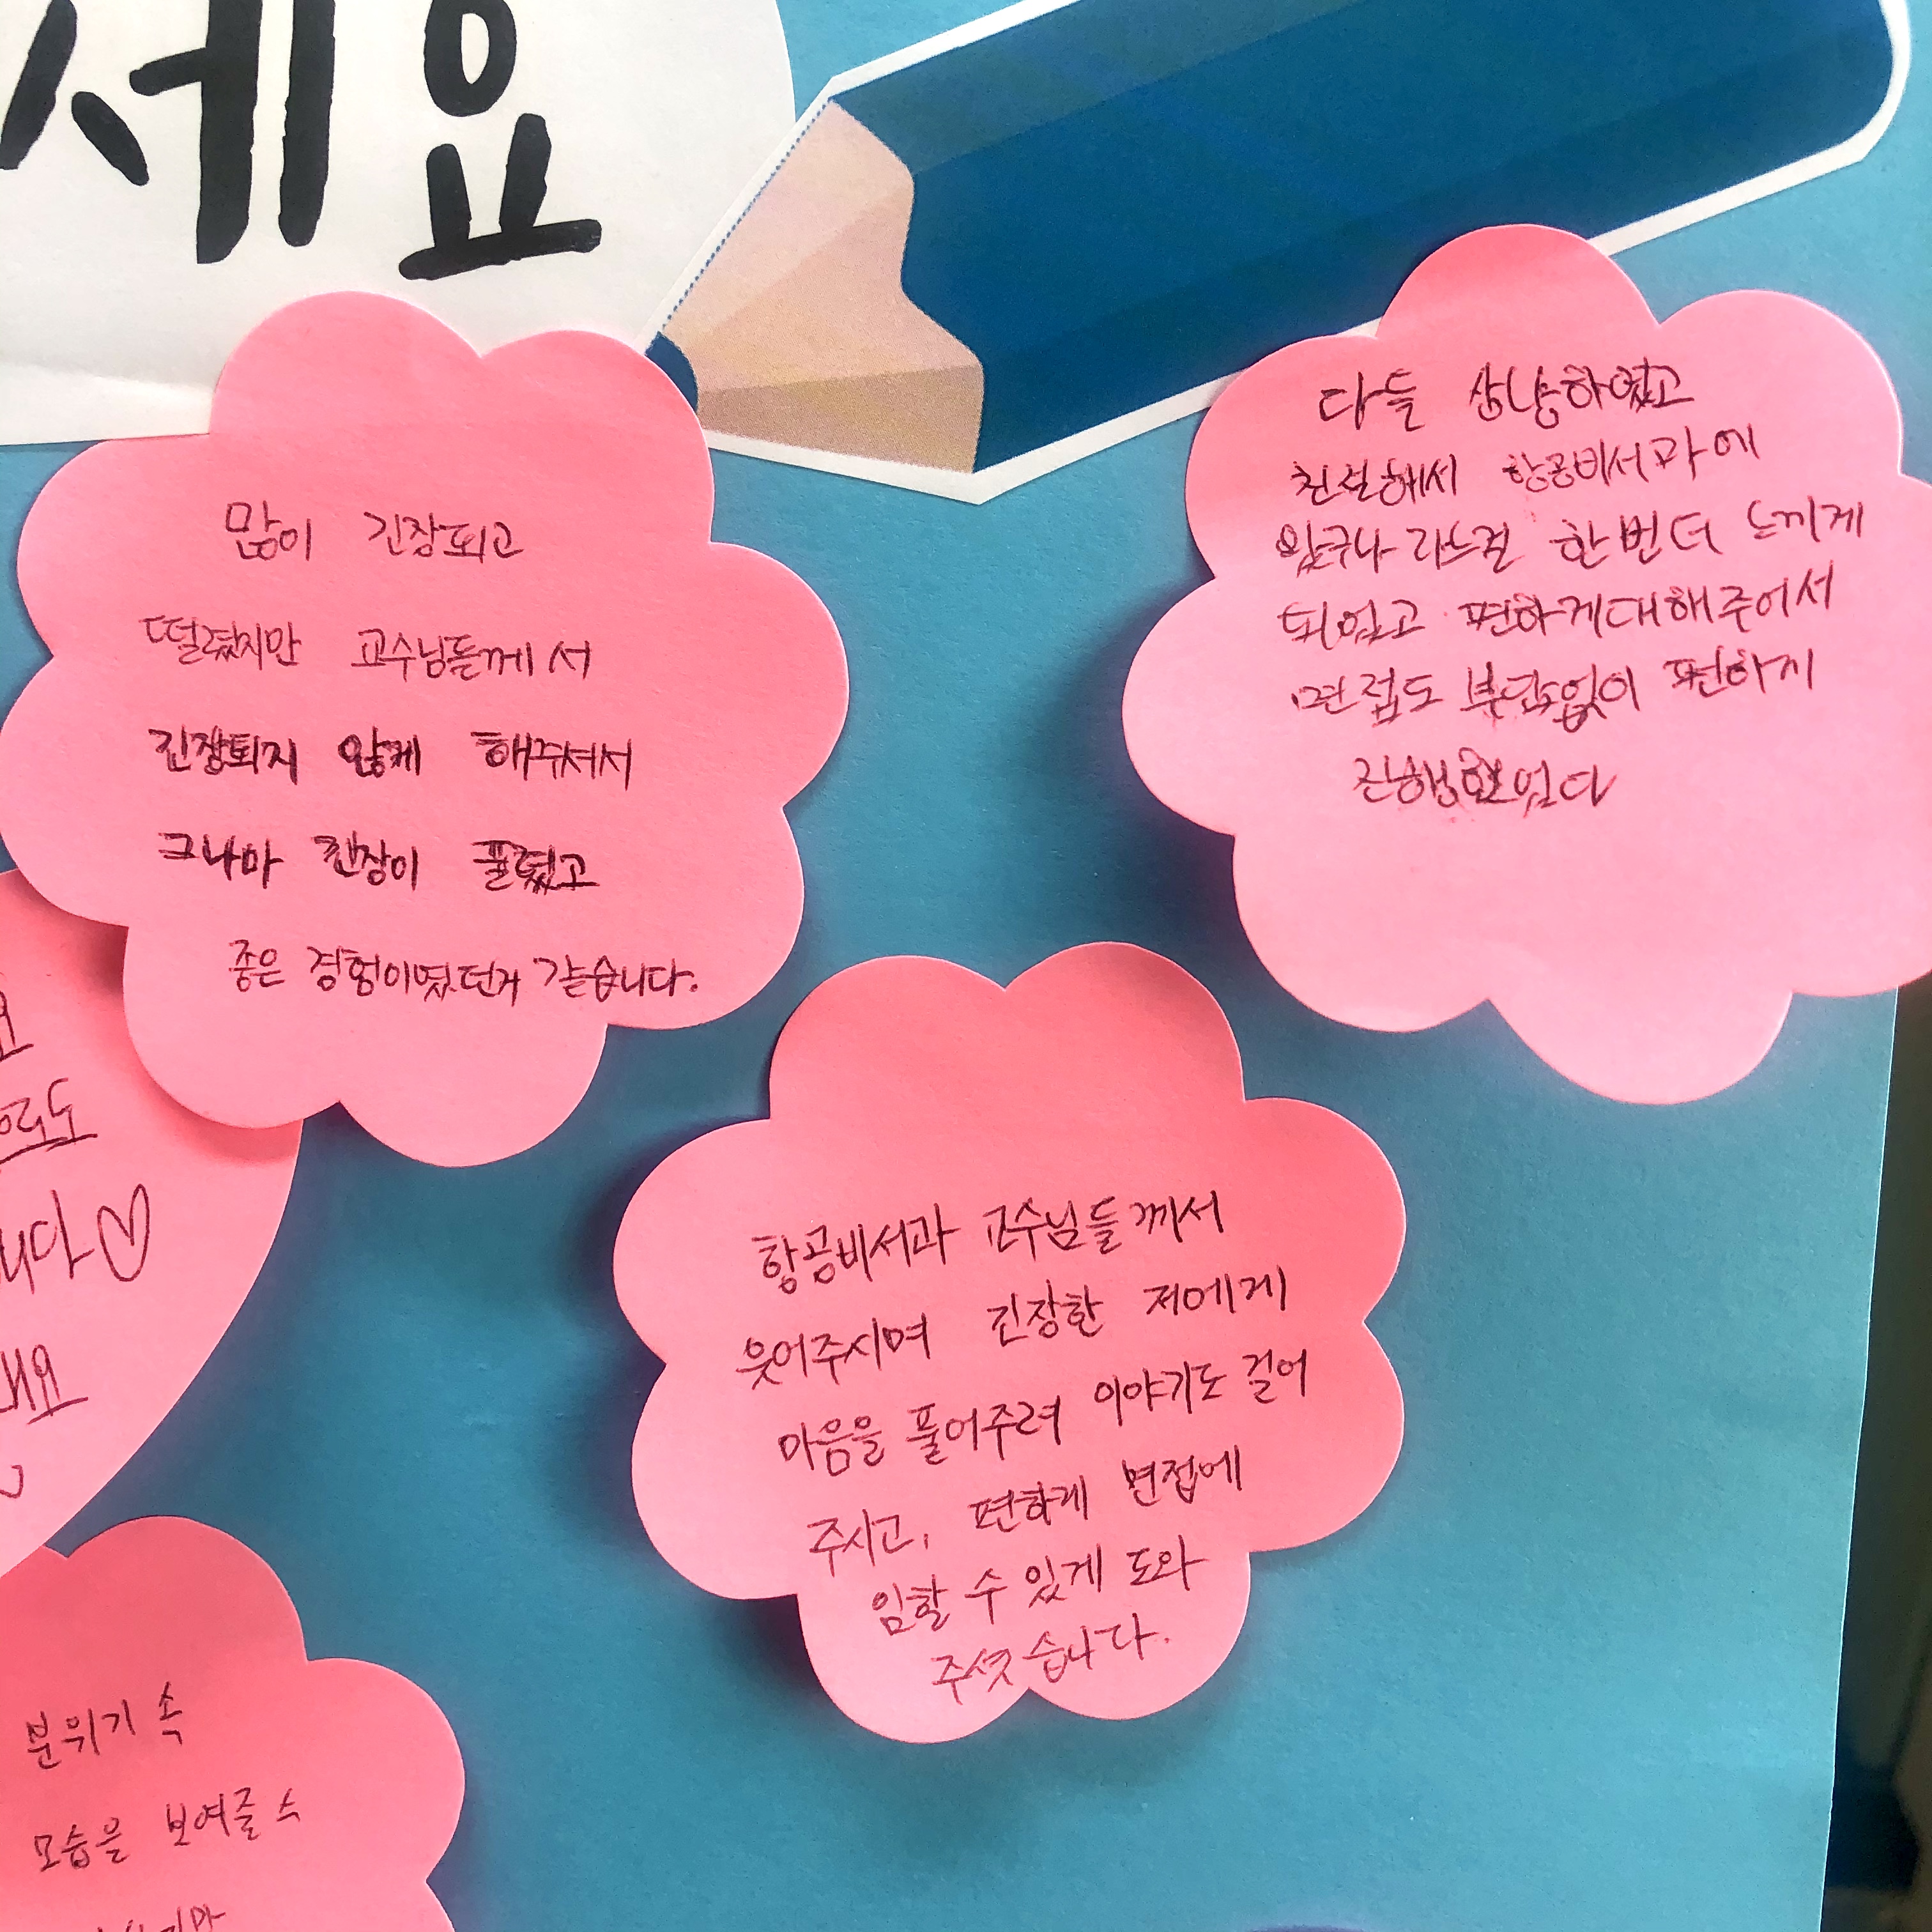 세요
많이 긴장되고
떨렸지만 교수님들께서
긴장되지 않게 해주셔서
그나마 긴장이 풀렸고
좋은 경험이였던거 같습니다.
다들 상냥하였고
친절해서 항공비서과에
왔구나 라는걸 한번더 느끼게
되었고 편하게대해주어서
면접도 부담없이 편하게
진행했었다
항공비서과 교수님들께서
웃어주시며 긴장한 저에게
마음을 풀어주려 이야기도 걸어
주시고, 편하게 면접에
임할 수 있게 도와
주셧습니다.
요
니다♡
요
분위기 속
모습을 보여줄 수
지만